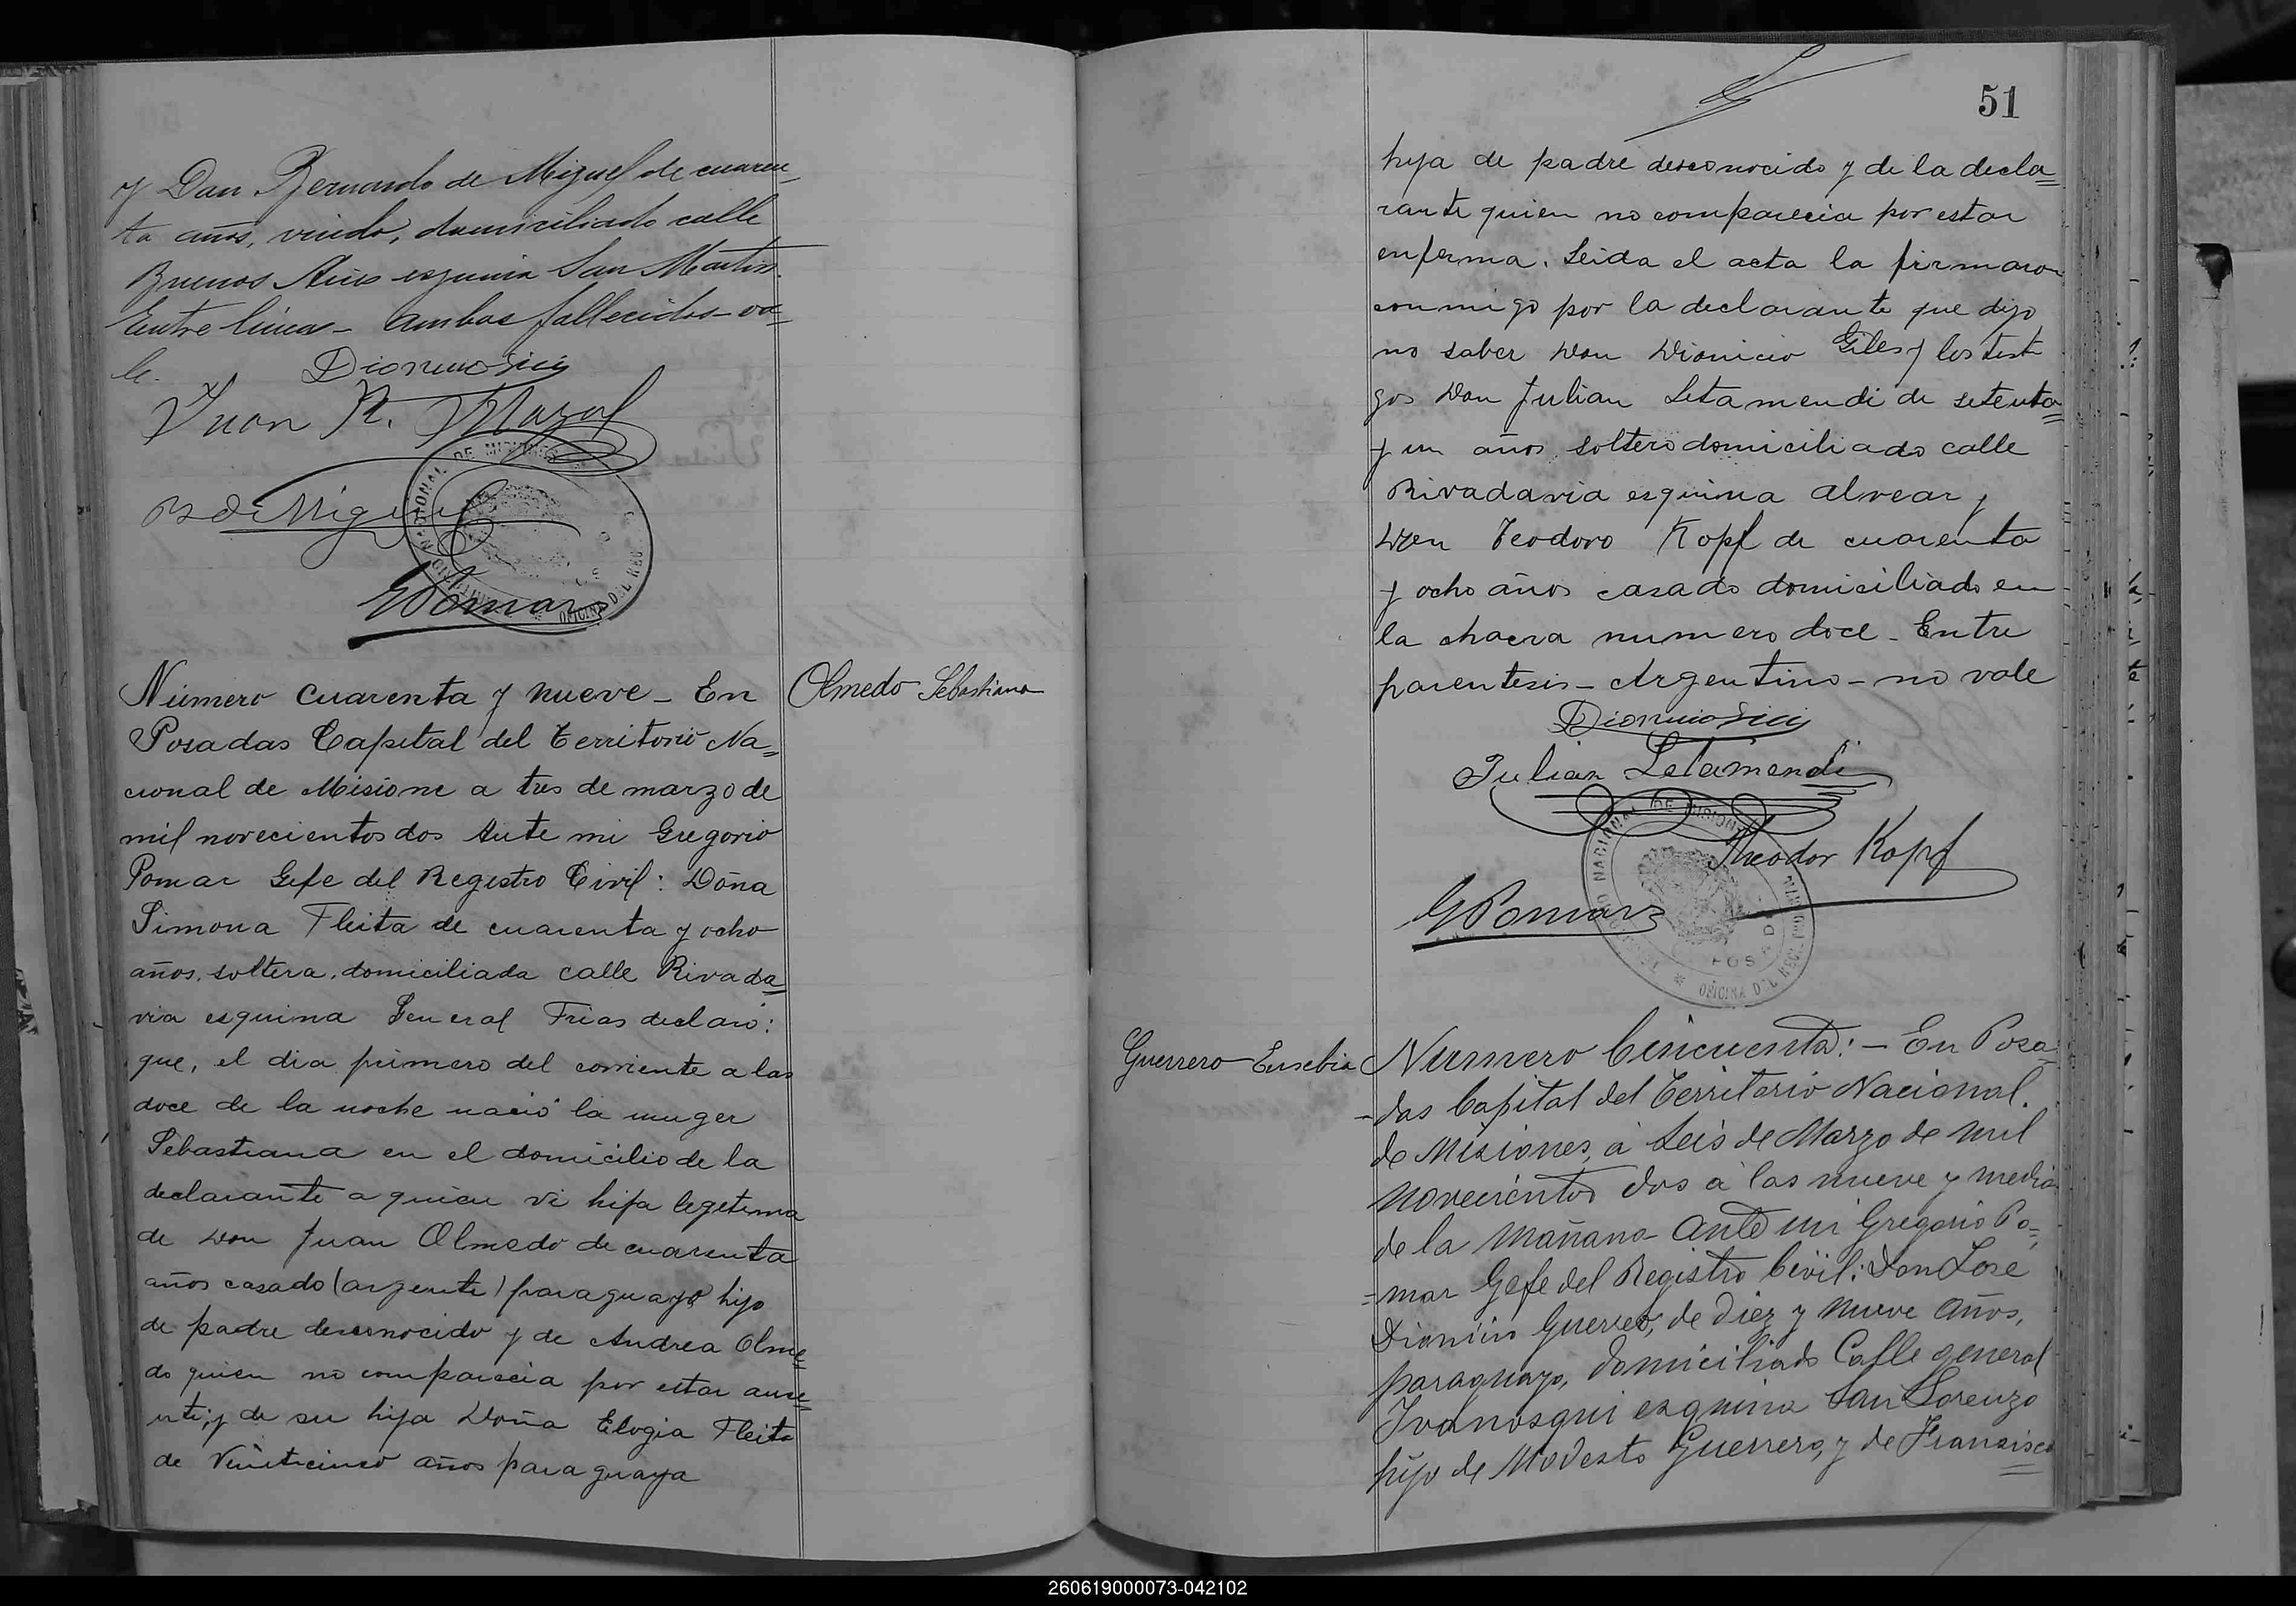 y Don Bernardo de Miguel de cuaren-
ta años, viudo, domiciliado calle
Buenos Aires esquina San Martin.
Entre lineas - ambos fallecidos - va-
le.
Juan R. Mazal
B de Miguel
GPomar
Número cuarenta y nueve - En
Posadas Capital del Territorio Na=
cional de Misione a tres de marzo de
mil novecientos dos Ante mi Gregorio
Pomar Gefe del Registro Civil: Doña
Simona Fleita de cuarenta y ocho
años, soltera, domiciliada calle Rivada=
via esquina General Frias declaró:
que, el dia primero del corriente a las
doce de la noche nació la muger
Sebastiana en el domicilio de la
declarante a quien vi hija legetima
de Don Juan Olmedo de cuarenta
años casado (argente) paraguayo hijo
de padre desconocido y de Andrea Olme=
do quien no comparecia por estar ause=
nte; y de su hija Doña Elogia Fleita
de Veinticinco años paraguaya
Olmedo Sebastiana
51
hija de padre desconocido y de la decla=
rante quien no comparecia por estar
enferma. Leida el acta la firmaron
conmigo por la declarante que dijo
no saber Don Dionicio Giles y los testi
gos Don Julian Letamendi de setenta=
y un años soltero domiciliado calle
Rivadavia esquina Alvear y
Don Teodoro Kopf de cuarenta
y ocho años casado domiciliado en
la chacra numero doce - Entre
parentesis - Argentino - no vale
Julian Letamendi
Theodor Kopf
GPomar
Guerrero Eusebia
Numero Cincuenta: - En Posa
-das Capital del Territorio Nacional.
de Misiones, á Seis de Marzo de mil
novecientos dos á las nueve y media
de la mañana - Ante mi Gregorio Po=
=mar Gefe del Registro Civil: Don José
Dionicio Guerrero, de diez y nueve años,
paraguayo, domiciliado Calle general
Ivanosqui esquina San Lorenzo
hijo de Modesto Guerrero, y de Fransisca
260619000073-042102